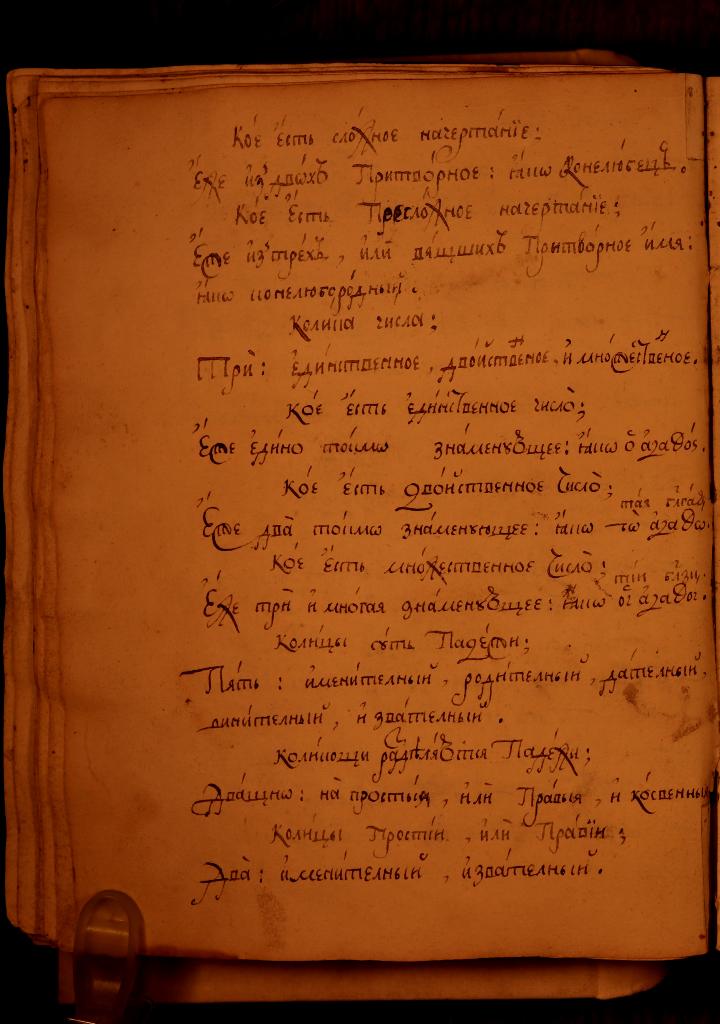 Ко́е є҆́сть сло́жное начерта́нїе:
Є҆́же и҆з̾ двꙋ́хъ Притво́рное: ꙗ҆́кѡ Конелю́бецъ.
Ко́е є҆́сть Пресло́жное начерта́нїе;
Є҆́же и҆з̾ тре́хъ, и҆лѝ вѧ́щшихъ Притво́рное и҆́мѧ:
ꙗ҆́кѡ конелюборо́дный.
Коли́ка числа̀;
Трѝ: є҆ди́нственное, дво́йственное, и҆ мно́жественное.
Ко́е є҆́сть є҆ди́нственное число̀;
Є҆́же є҆ди́но то́кмѡ зна́менꙋющее: ꙗ҆́кѡ ὁ ἀγαθός.
Ко́е є҆́сть дво́йственное число̀;
Є҆́же два̀ то́кмѡ зна́менующее: ꙗ҆́кѡ τὼ ἀγαθώ.
Ко́е є҆́сть мно́жественное число̀;
Є҆́же трѝ и҆ мно́гая зна́менꙋющее: ꙗ҆́кѡ οἱ ἀγαθοί.
Коли́цы сꙋ́ть Паде́жи;
Пѧ́ть: и҆мени́телный, роди́телный, да́телный,
вини́телный, и҆ зва́телный.
раздѣлѧ́ютсѧ Паде́жи;
на̀ просты́ѧ, и҆лѝ Пра́выѧ, и҆ ко́свенныѧ
Коли́цы Прости́и, и҆лѝ Пра́вїи;
Два̀: и҆мени́телный, и҆ зва́телный.